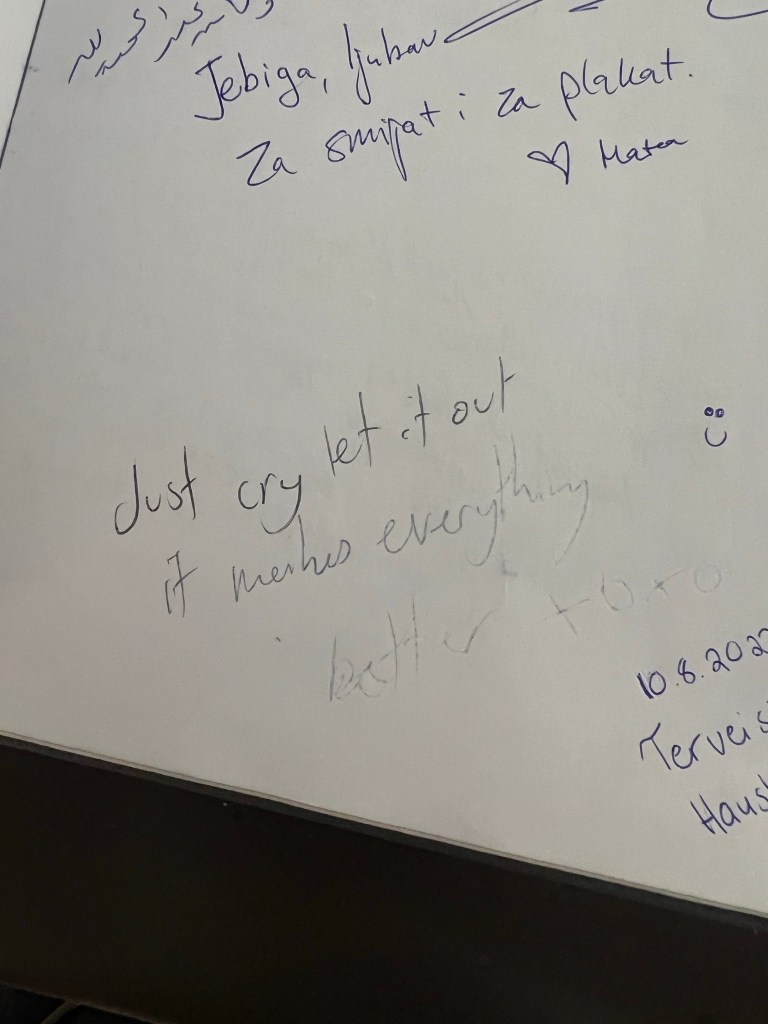 Jebiga, ljubav
Za smijat i za plakat.
♡ Matea
Just cry let it out
it makes everything
better xoxo
10.8.202
Terveis
Haus